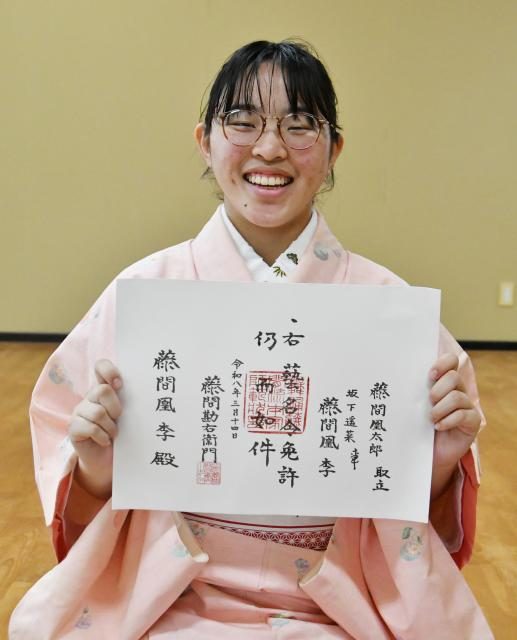 藤間凰太郎 取立
坂下遥菜 事
藤間凰 李
、右 藝名令免許
仍而如件
令和八年三月十四日
藤間勘右衛門
藤間凰 李 殿